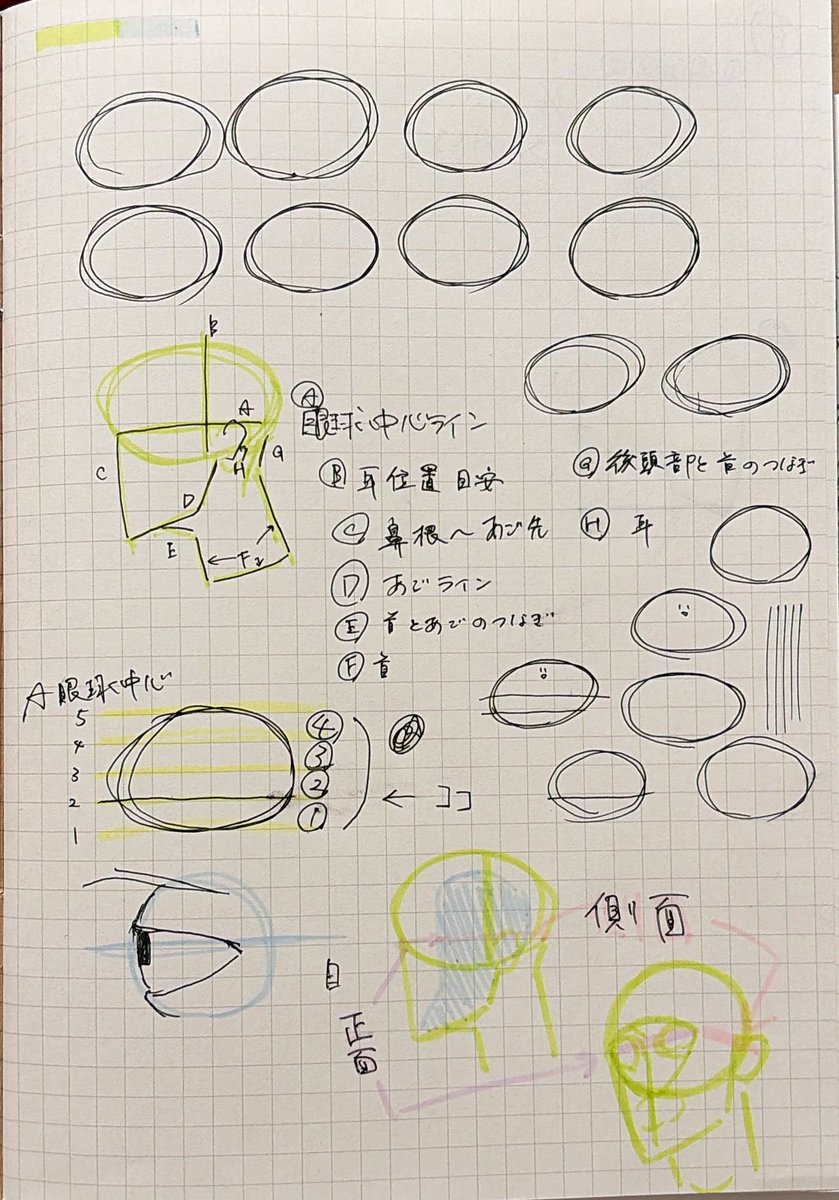 B
A
C
G
H
D
E
F
Ⓐ
眼球中心ライン
Ⓑ 耳位置目安
Ⓒ 鼻根〜あご先
Ⓓ あごライン
Ⓔ 首とあごのつなぎ
Ⓕ 首
Ⓖ 後頭部と首のつなぎ
Ⓗ 耳
A 眼球中心
5
4
3
2
1
④
③
②
①
← ココ
目
正面
側面